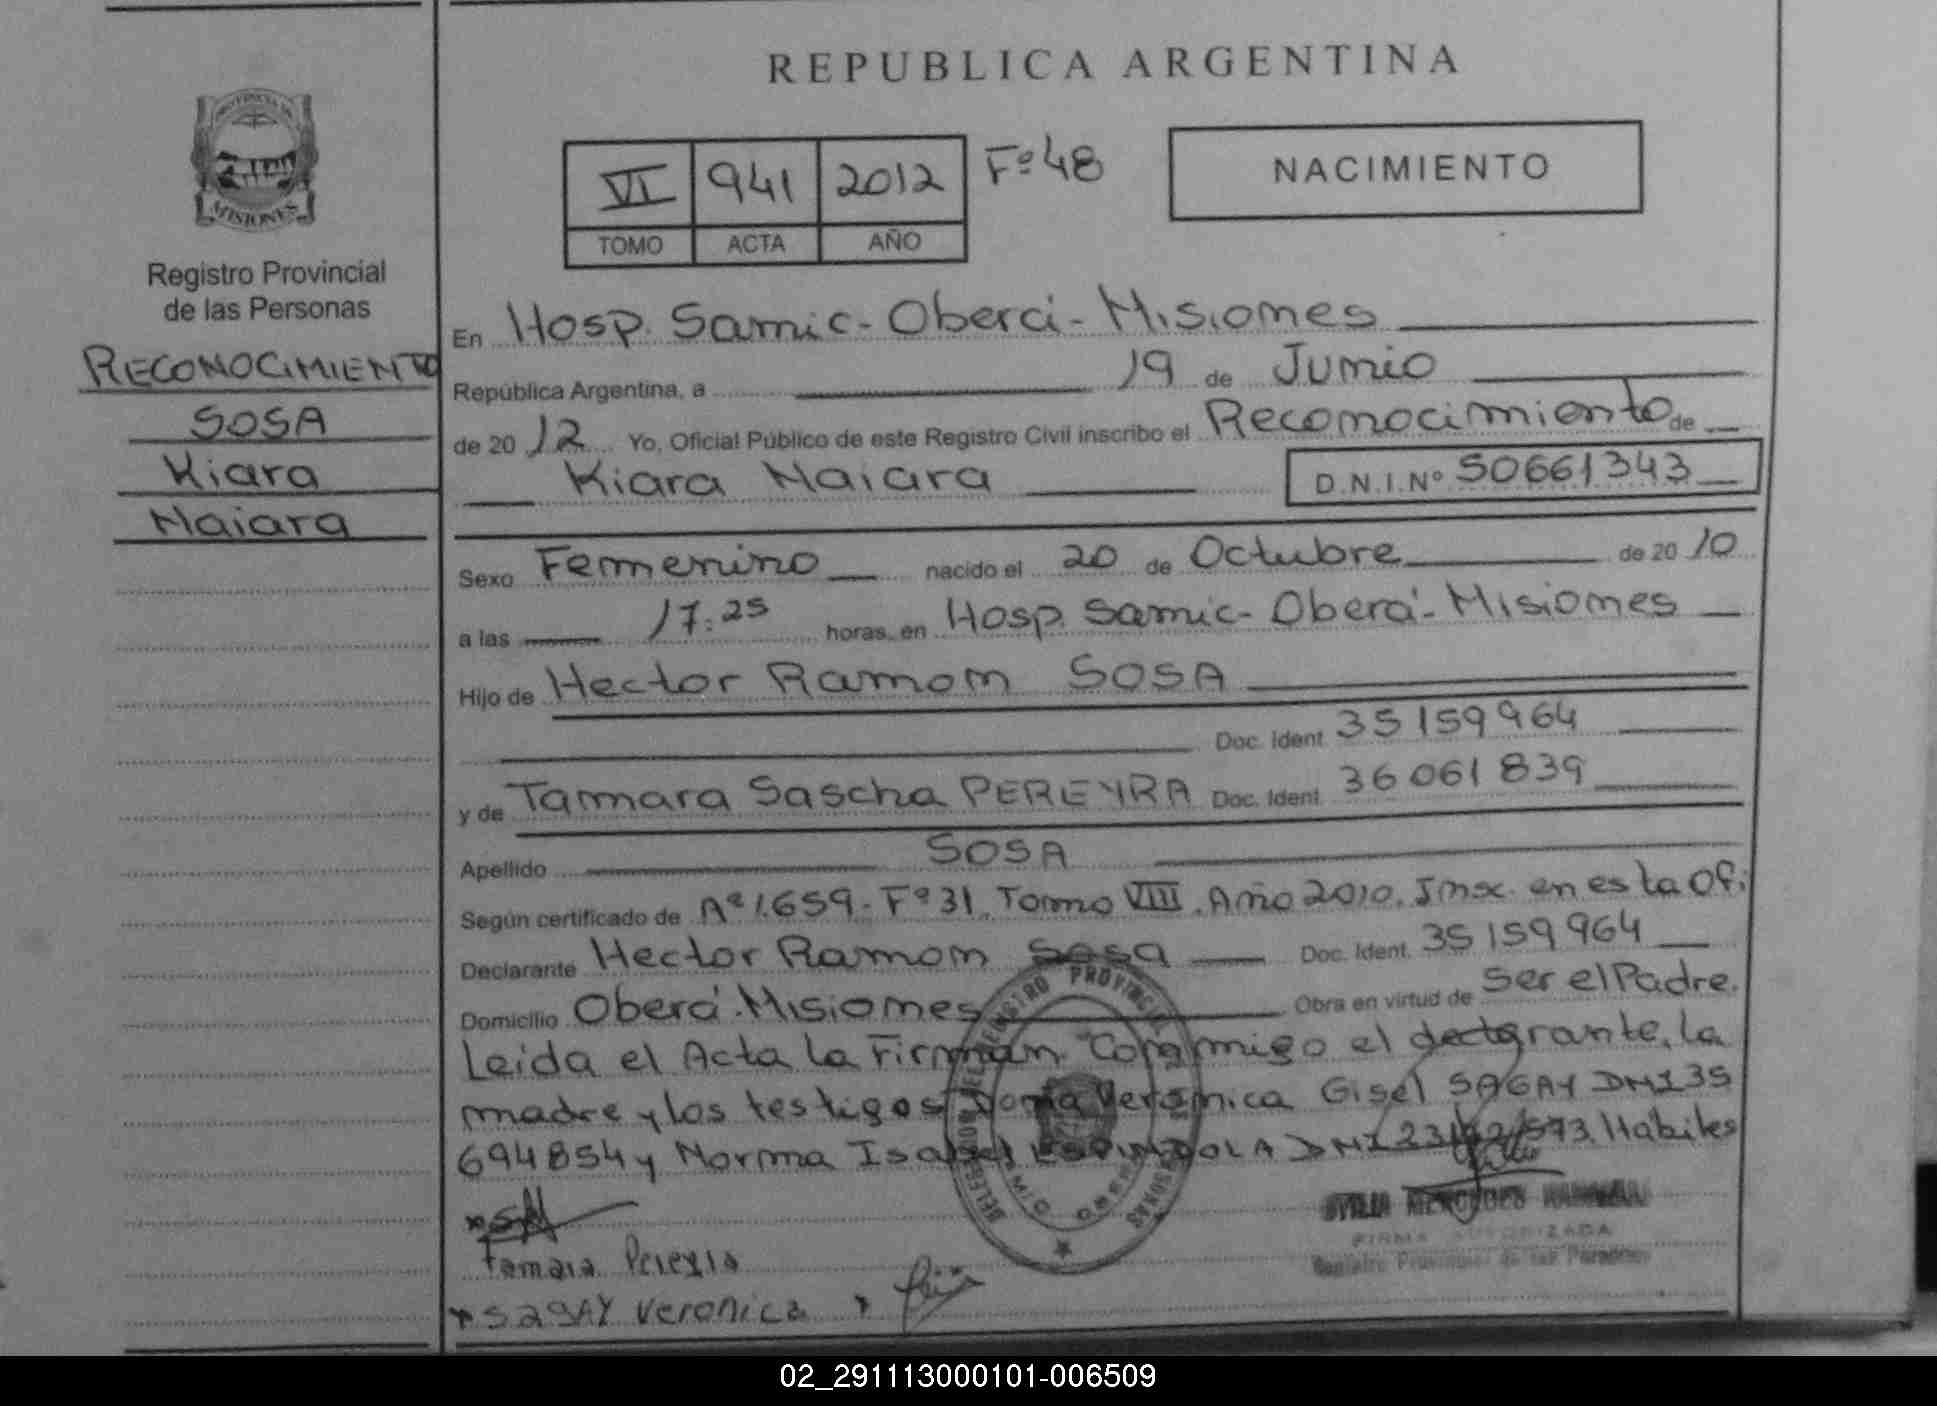 REPUBLICA ARGENTINA
PROVINCIA DE
MISIONES
Registro Provincial
de las Personas
RECONOCIMIENTO
SOSA
Kiara
Maiara
VI 941 2012 Fº 48
TOMO ACTA AÑO
NACIMIENTO
En Hosp. Samic - Oberá - Misiones
República Argentina, a 19 de Junio
de 20 12 Yo, Oficial Público de este Registro Civil inscribo el Reconocimiento de
Kiara Maiara D.N.I.Nº 50661343
Sexo Femenino nacido el 20 de Octubre de 20 10
a las 17:25 horas, en Hosp. Samic - Oberá - Misiones
Hijo de Hector Ramon SOSA
Doc. Ident. 35159964
y de Tamara Sascha PEREYRA Doc. Ident. 36061839
Apellido SOSA
Según certificado de Aº 1.659 - Fº 31. Tomo VIII. Año 2010. Insc. en esta Of.
Declarante Hector Ramon Sosa Doc. Ident. 35159964
Domicilio Oberá - Misiones Obra en virtud de Ser el Padre.
Leida el Acta la Firman Conmigo el declarante, la
madre y los testigos Veronica Gisel SAGAY DNI 35
694854 y Norma Isabel ESPINDOLA DNI Habiles
Tamara Pereyra
FIRMA AUTORIZADA
Registro Provincial de las Personas
SagAY Veronica
02_291113000101-006509